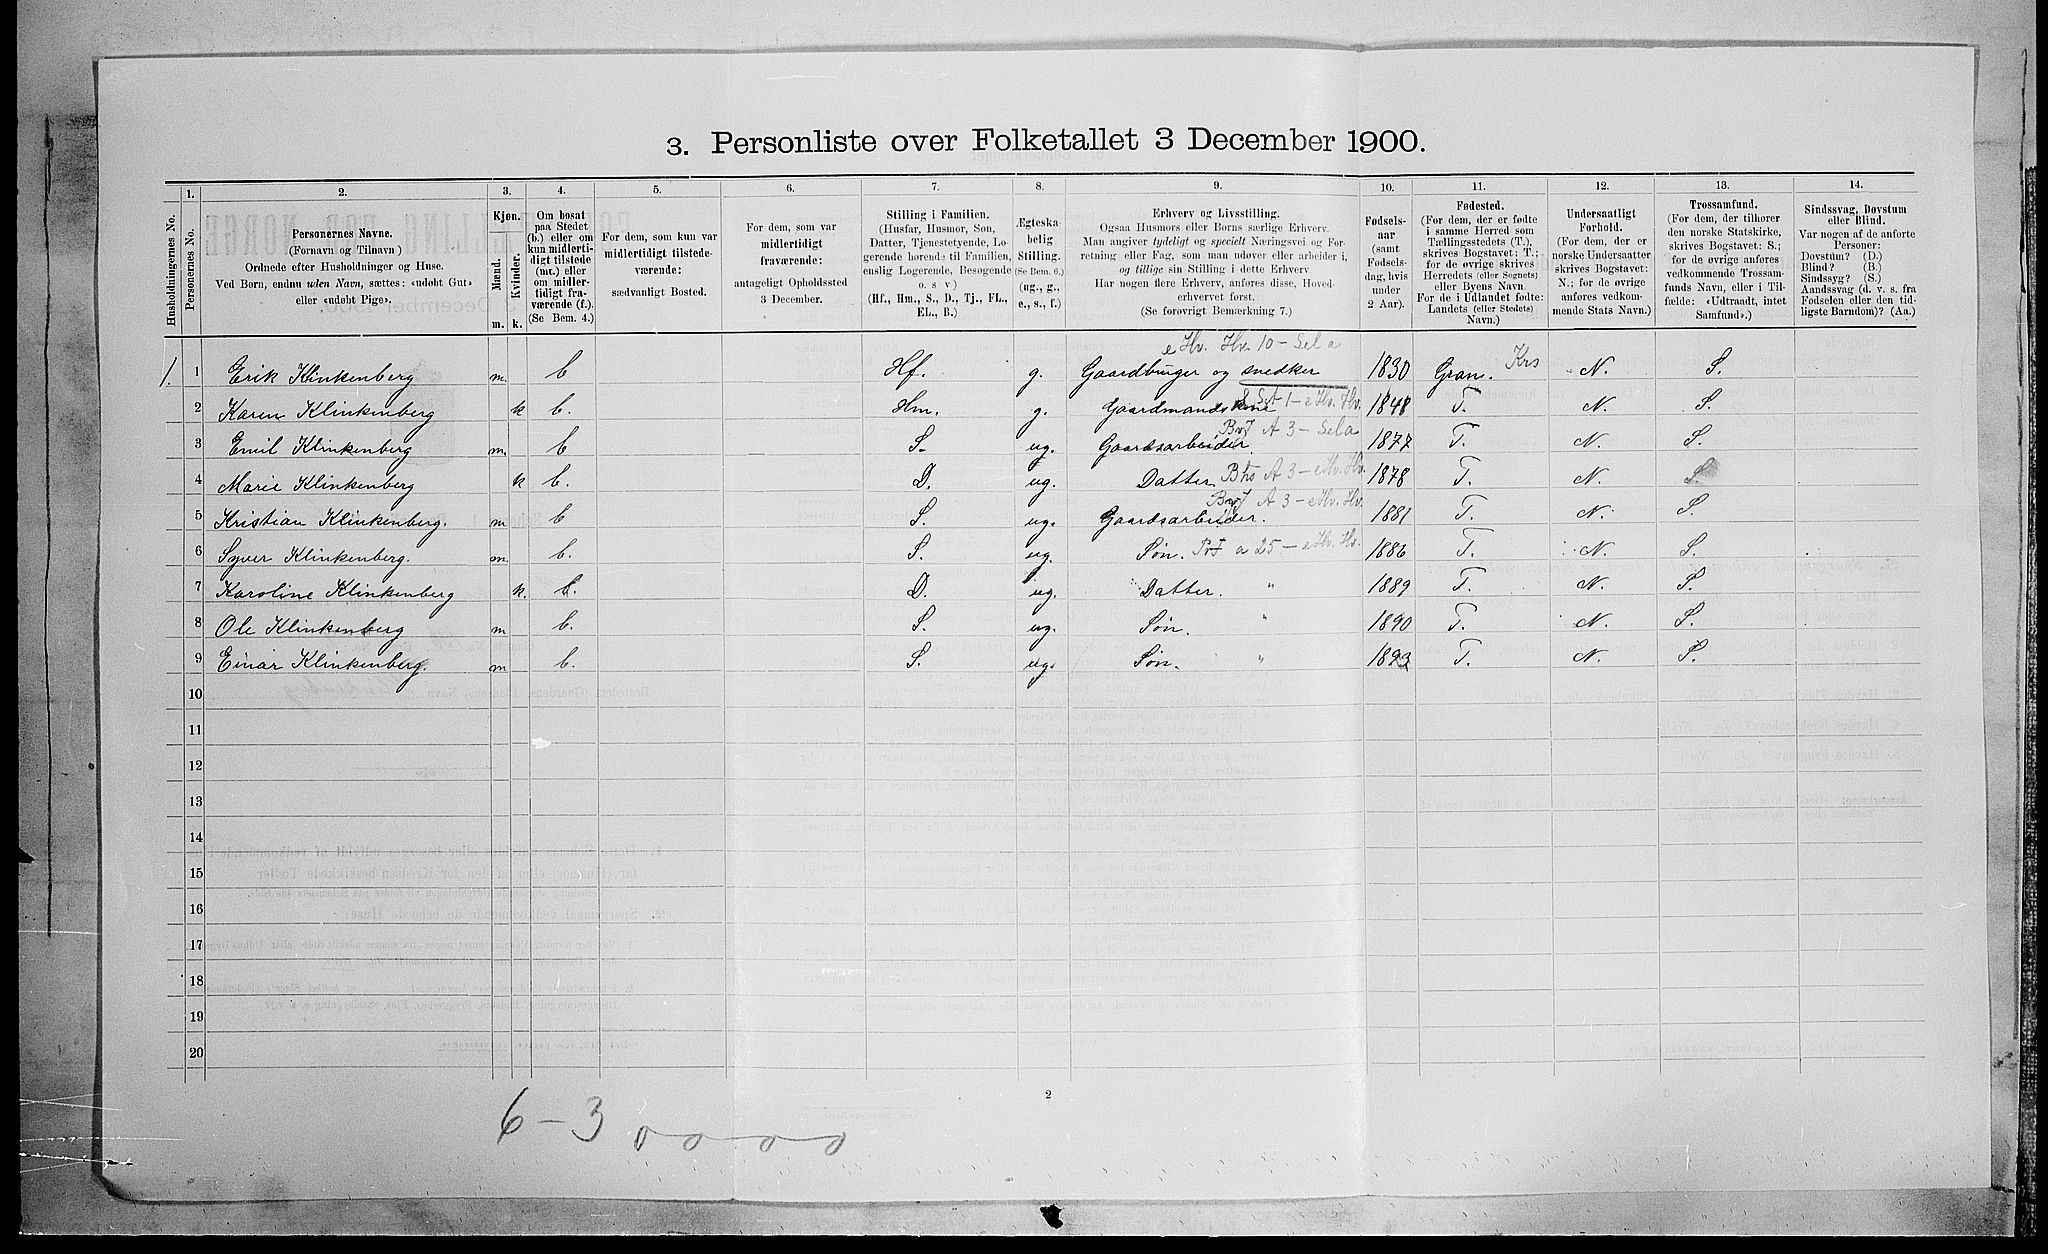 3. Personliste over Folketallet 3 December 1900.
Husholdningernes No.
1. Personernes No.
2. Personernes Navne. (Fornavn og Tilnavn) Ordnede efter Husholdninger og Huse. Ved Børn, endnu uden Navn, sættes: «udøbt Gut» eller «udøbt Pige».
3. Kjøn. Mænd. m. Kvinder. k.
4. Om bosat paa Stedet (b.) eller om kun midlertidigt tilstede (mt.) eller om midlertidigt fraværende (f.) (Se Bem. 4.)
5. For dem, som kun var midlertidigt tilstedeværende: sædvanligt Bosted.
6. For dem, som var midlertidigt fraværende: antageligt Opholdssted 3 December.
7. Stilling i Familien. (Husfar, Husmor, Søn, Datter, Tjenestetyende, Logerende hørende til Familien, enslig Logerende, Besøgende o. s. v.) (Hf., Hm., S., D., Tj., FL., EL., B.)
8. Ægteskabelig Stilling. (Se Bem. 6.) (ug., g., e., s., f.)
9. Erhverv og Livsstilling. Ogsaa Husmors eller Børns særlige Erhverv. Man angiver tydeligt og specielt Næringsvei og Forretning eller Fag, som man udøver eller arbeider i, og tillige sin Stilling i dette Erhverv. Har nogen flere Erhverv, anføres disse, Hovederhvervet først. (Se forøvrigt Bemærkning 7.)
10. Fødselsaar (samt Fødselsdag, hvis under 2 Aar).
11. Fødested. (For dem, der er fødte i samme Herred som Tællingsstedets (T.), skrives Bogstavet: T.; for de øvrige skrives Herredets (eller Sognets) eller Byens Navn. For de i Udlandet fødte: Landets (eller Stedets) Navn.)
12. Undersaatligt Forhold. (For dem, der er norske Undersaatter skrives Bogstavet: N.; for de øvrige anføres vedkommende Stats Navn.)
13. Trossamfund. (For dem, der tilhører den norske Statskirke, skrives Bogstavet: S.; for de øvrige anføres vedkommende Trossamfunds Navn, eller i Tilfælde: «Udtraadt, intet Samfund».)
14. Sindssvag, Døvstum eller Blind. Var nogen af de anførte Personer: Døvstum? (D.) Blind? (B.) Sindssyg? (S.) Aandssvag (d. v. s. fra Fødselen eller den tidligste Barndom)? (Aa.)
e Hv. Hv. 10 - Sela
1. 1 Erik Klinkenberg m. b Hf. g. Gaardbruger og snedker 1830 Gran. Krs N. S.
2 Karen Klinkenberg k b. Hm. g. Gaardmandskone 1 - e Hv. Hv. 1848 T. N. S.
3 Emil Klinkenberg m. b S. ug. Gaardsarbeider. A 3 - Sela 1877 T. N. S.
4 Marie Klinkenberg k b. D. ug. Datter. A 3 - e Hv. Hv. 1878 T. N. S.
5 Kristian Klinkenberg. m b S. ug. Gaardsarbeider. A 3 - e Hv. Hv. 1881 T. N. S.
6 Syver Klinkenberg. m. b. S. ug. Søn. a 25 - e Hv. Hv. 1886 T. N. S.
7 Karoline Klinkenberg k. b. D. ug. Datter. " 1889 T. N. S.
8 Ole Klinkenberg m b. S. ug. Søn. " 1890 T. N. S.
9 Einar Klinkenberg. m b. S. ug. Søn. " 1893 T. N. S.
10
11
12
13
14
15
16
17
18
19
20
2
6 - 3 0 0 0 0